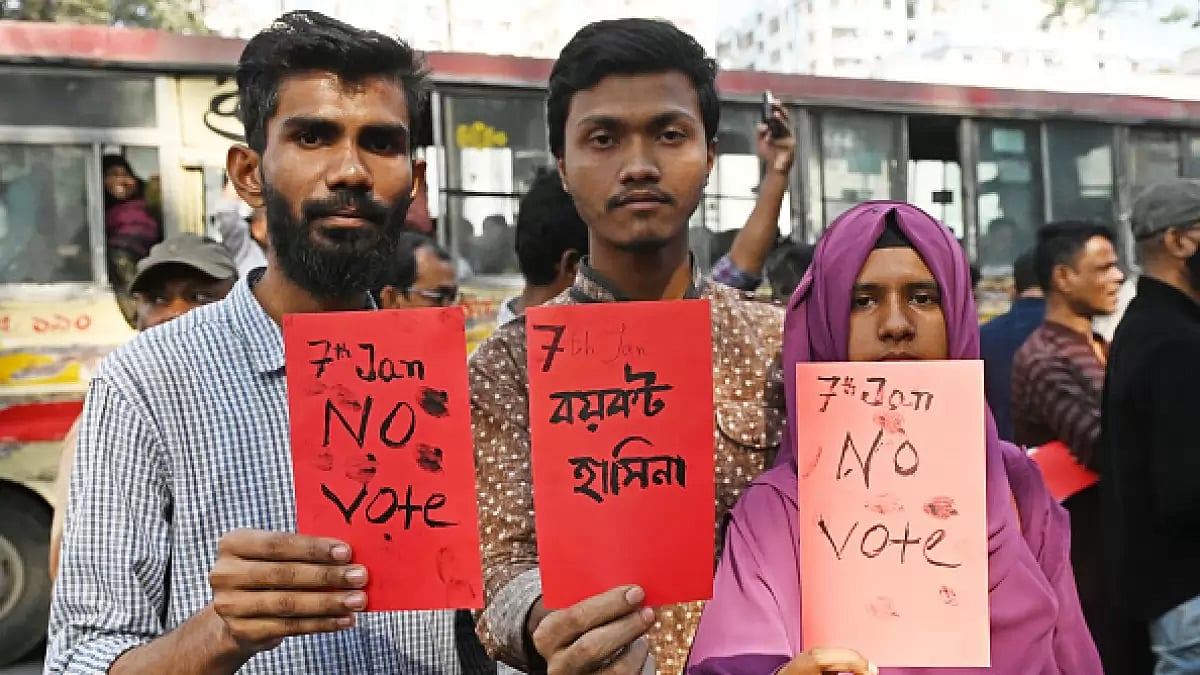 7th Jan
NO
Vote
7th Jan
বয়কট
হাসিনা
7th Jan
NO
Vote